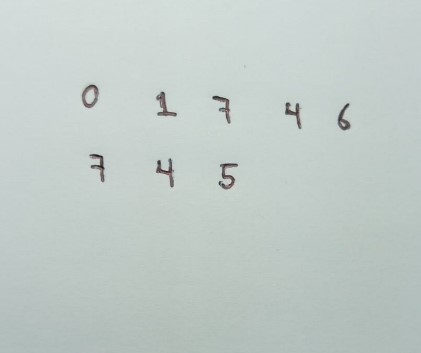 0 1 7 4 6
7 4 5